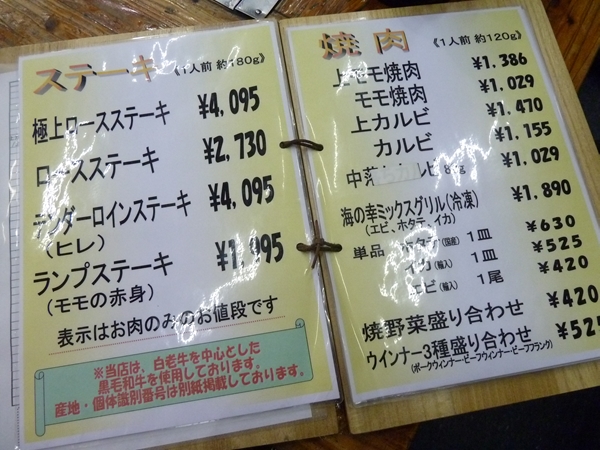 ステーキ 《1人前 約180g》
極上ロースステーキ ¥4,095
ロースステーキ ¥2,730
テンダーロインステーキ ¥4,095
(ヒレ)
ランプステーキ ¥1,995
(モモの赤身)
表示はお肉のみのお値段です
※当店は、白老牛を中心とした
黒毛和牛を使用しております。
産地・個体識別番号は別紙掲載しております。
焼肉 《1人前 約120g》
上モモ焼肉 ¥1,386
モモ焼肉 ¥1,029
上カルビ ¥1,470
カルビ ¥1,155
中落ちカルビ ¥1,029
海の幸ミックスグリル(冷凍) ¥1,890
(エビ、ホタテ、イカ)
単品 ホタテ(国産) 1皿 ¥630
イカ(輸入) 1皿 ¥525
エビ(輸入) 1尾 ¥420
焼野菜盛り合わせ ¥420
ウインナー3種盛り合わせ ¥525
(ポークウインナー・ビーフウインナー・ビーフフランク)